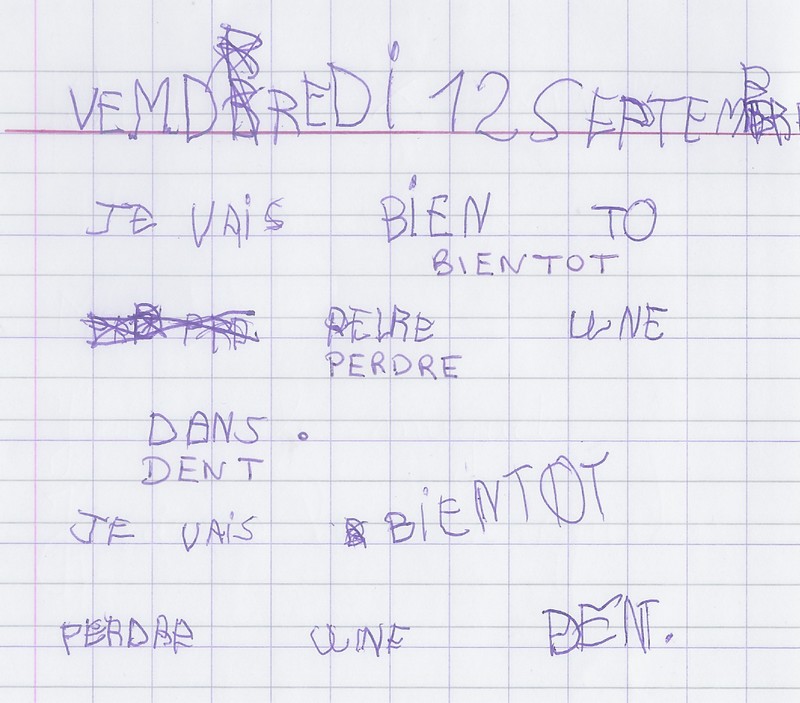 VEMDBREDI 12 SEPTEMBRE
JE VAIS BIEN TO
BIENTOT
PEIRE UNE
PERDRE
DANS.
DENT
JE VAIS BIENTOT
PERDRE UNE DENT.